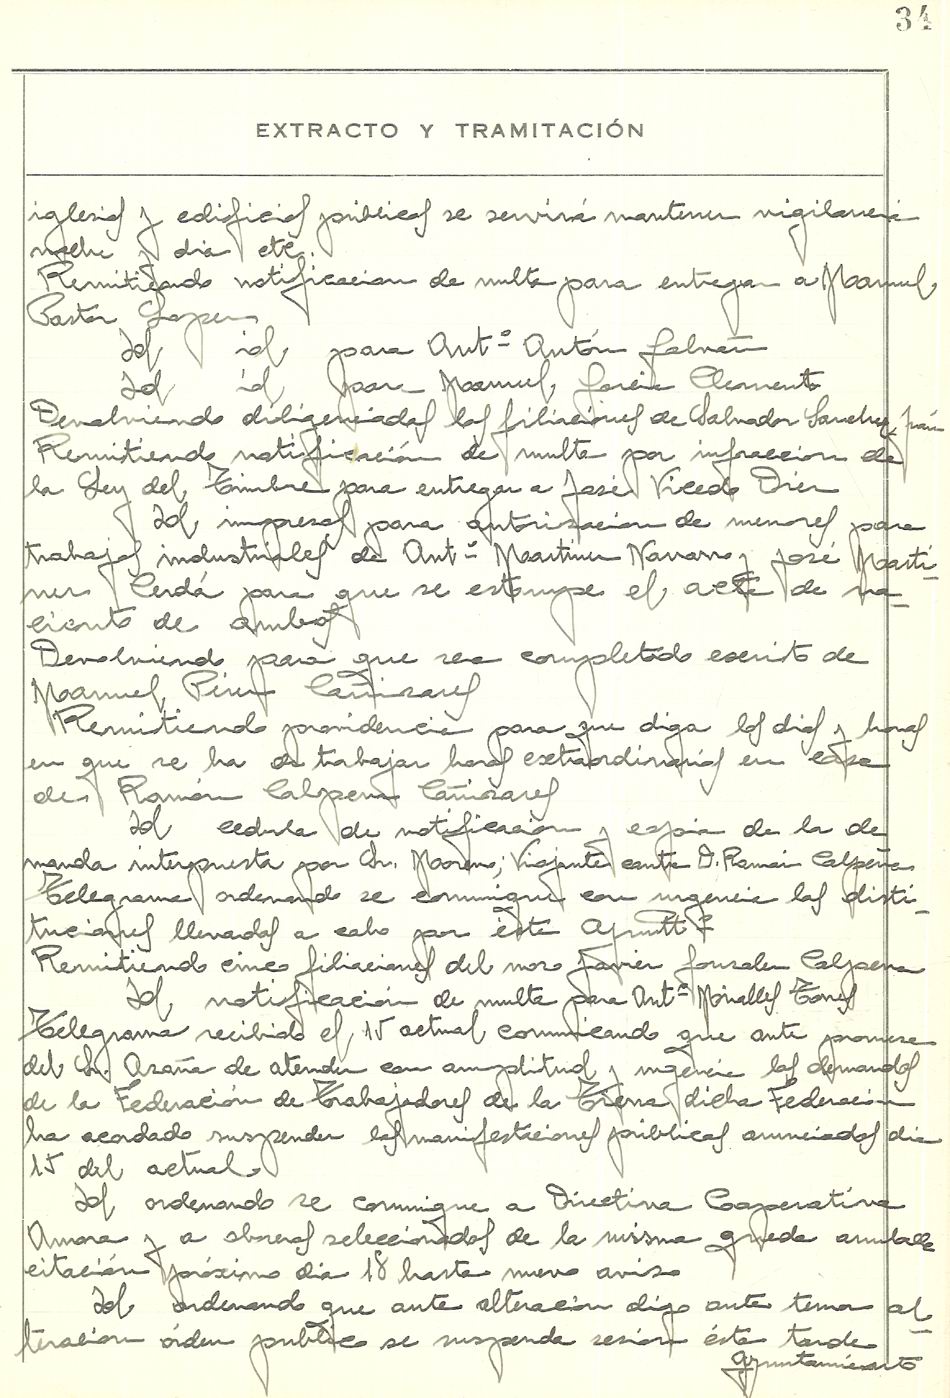 34
EXTRACTO Y TRAMITACIÓN
iglesias y edificios publicos se servirá mantener vigilancia
noche y dia etc.
Remitiendo notificacion de multa para entregar a Manuel
Pastor Lopez
Id id para Antº Antón Galvañ
Id id para Manuel Garcia Clemente
Devolviendo diligenciadas las filiaciones de Salvador Sanchez Juan
Remitiendo notificación de multa por infraccion de
la Ley del Timbre para entregar a José Vicedo Diez
Id impresos para autorizacion de menores para
trabajos industriales de Antº Martinez Navarro y José Marti-
nez Cerdá para que se estampe el acta de na-
ciento de ambos
Devolviendo para que sea completado escrito de
Manuel Pérez Cañizares
Remitiendo providencia para que diga los dias y horas
en que se ha de trabajar horas extraordinarias en casa
de Ramón Calpena Cañizares
Id cedula de notificacion y copia de la de
manda interpuesta por Sr. Moreno; Viajante contra D. Ramón Calpena
Telegrama ordenando se comunique con urgencia las desti-
tuciones llevadas a cabo por éste Ayuntt?
Remitiendo cinco filiaciones del mozo Javier Gonzalez Calpena
Id notificación de multa para Antº Miralles Torres
Telegrama recibido el 15 actual comunicando que ante promesa
del Sr. Azaña de atender con amplitud y urgencia las demandas
de la Federación de Trabajadores de la Tierra dicha Federacion
ha acordado suspender las manifestaciones públicas anunciadas dia
15 del actual.
Id ordenando se comunique a Directiva Cooperativa
Amora y a obreros seleccionados de la misma queda anulada
citación próximo dia 18 hasta nuevo aviso
Id ordenando que ante alteracion digo ante temor al-
teracion órden publico se suspenda sesión ésta tarde
Ayuntamiento